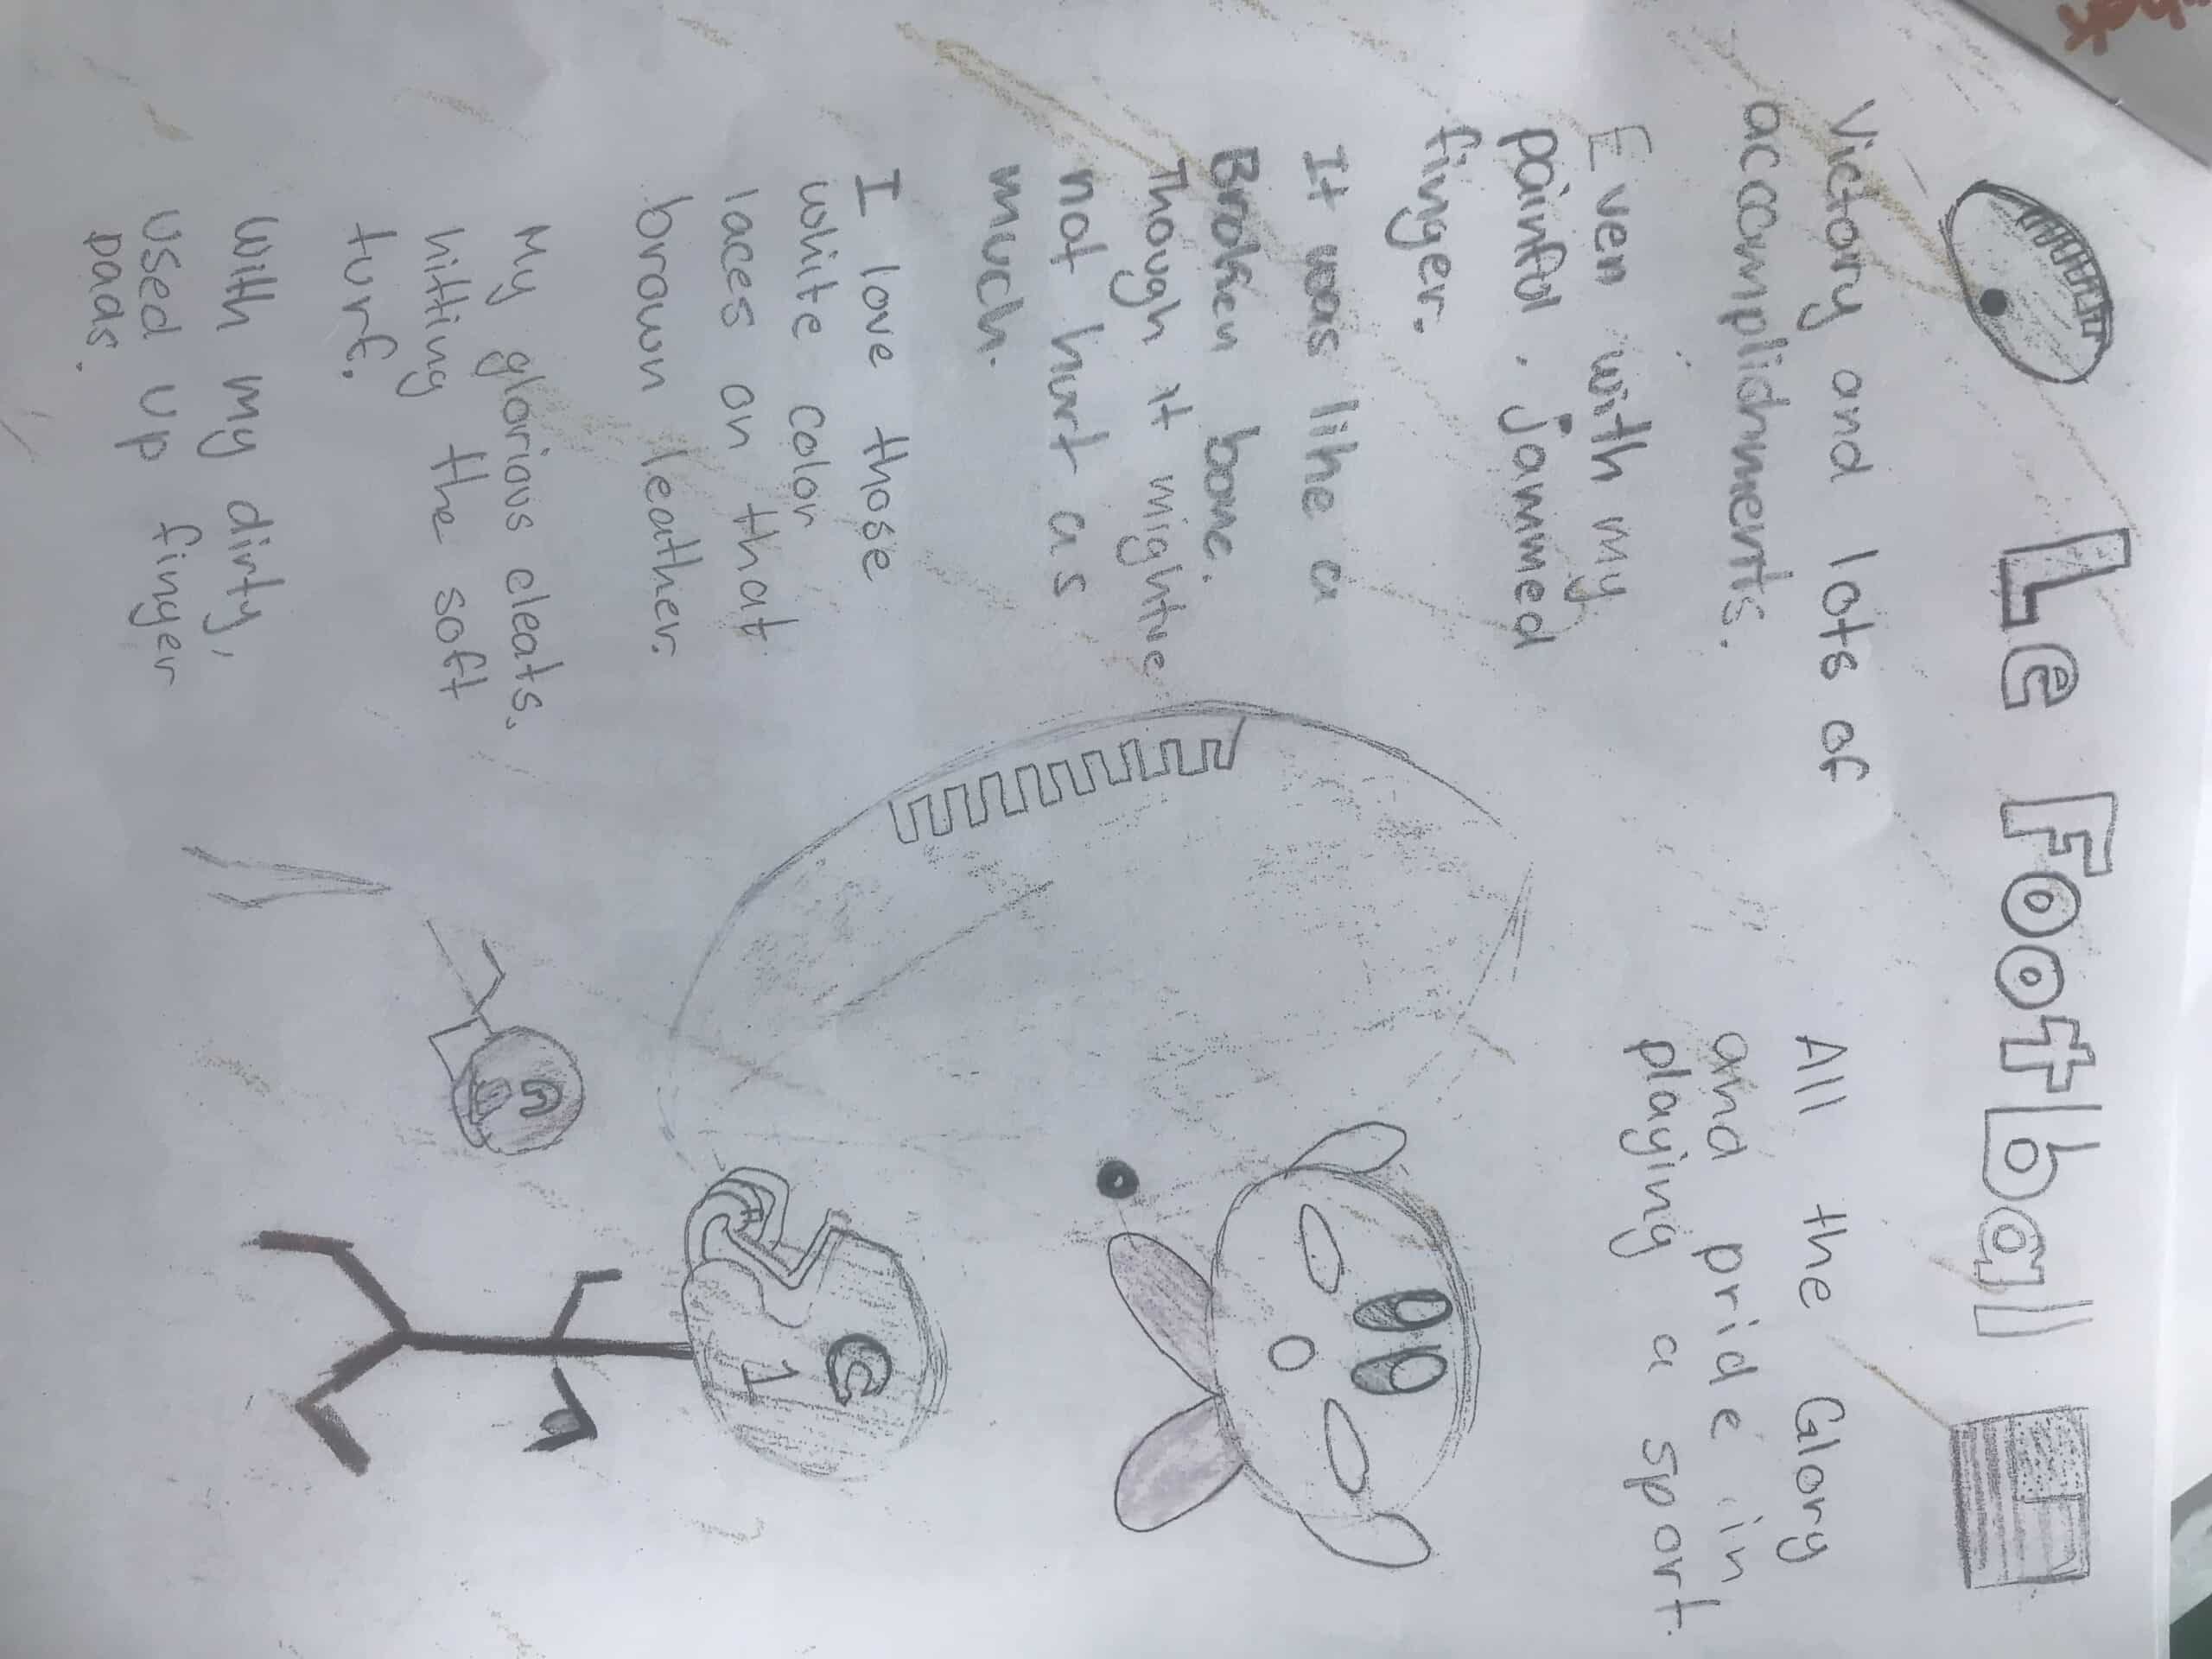 Le Football
Victory and lots of
accomplidhments.
Even with my
painful. jammed
finger.
It was like a
Broken bone.
Though it mightve
not hurt as
much.
I love those
white color
laces on that
brown leather.
My glorious cleats.
hitting the soft
turf.
with my dirty,
used up finger
pads.
All the Glory
and pride in
playing a sport.
C
1